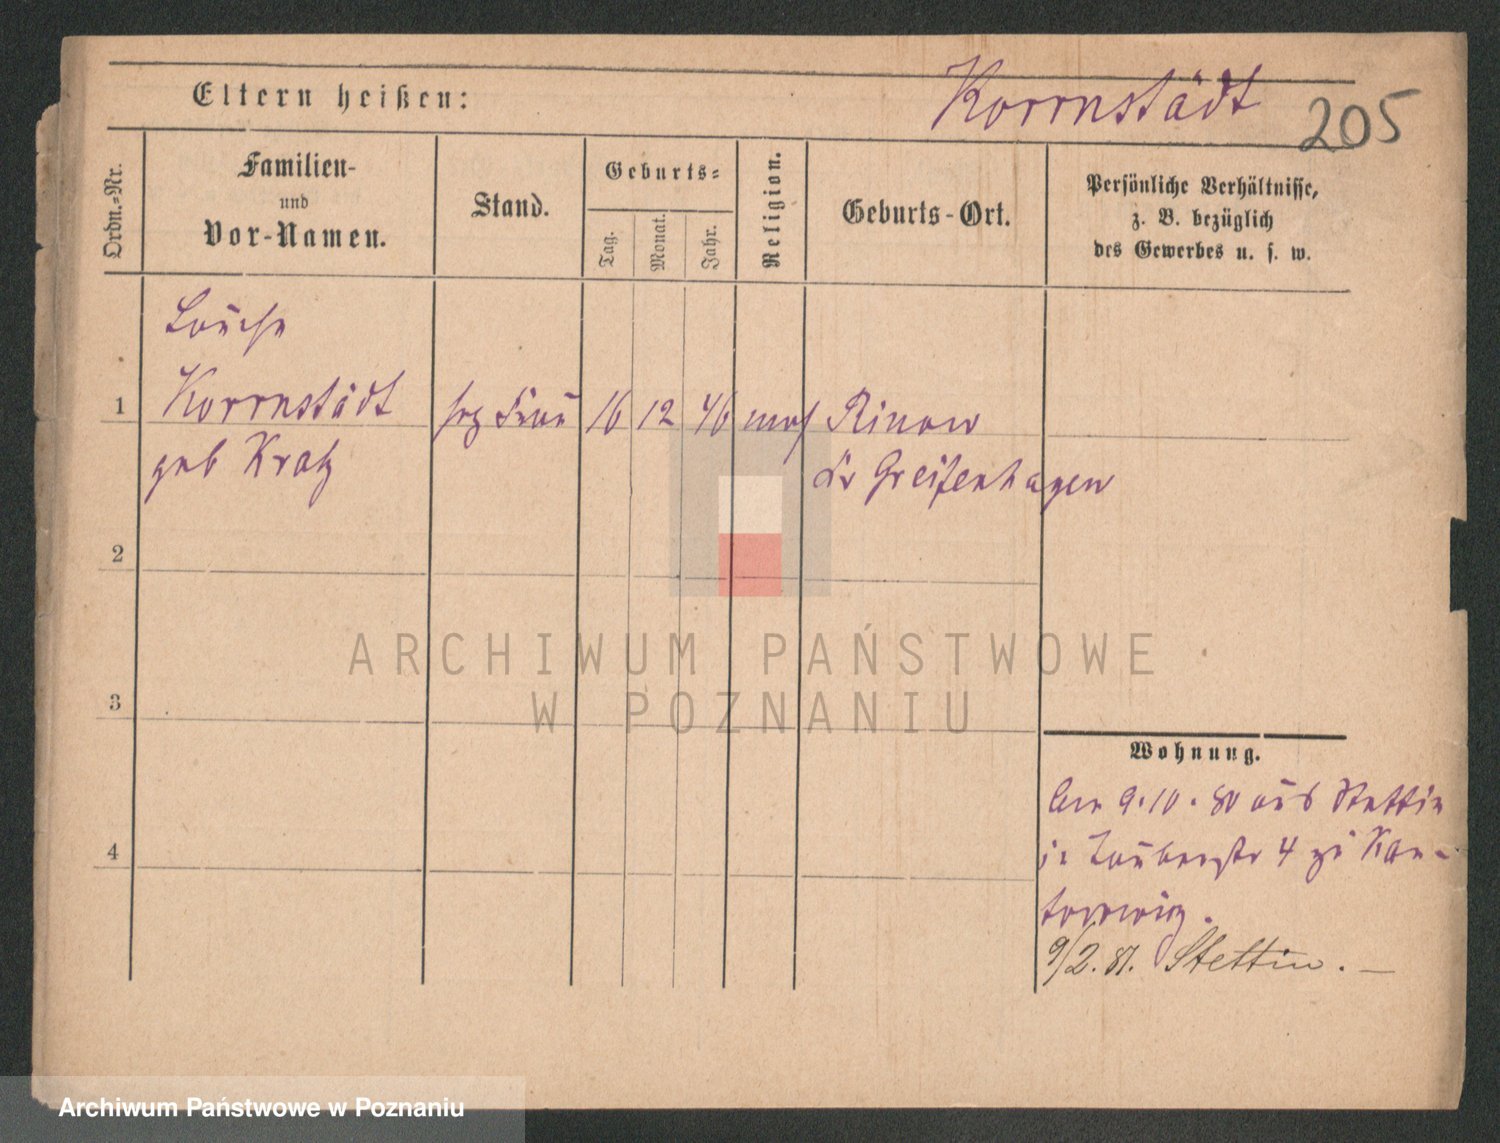 Eltern heißen:
Korrnstädt
205
Ordn.-Nr.
Familien-
und
Vor-Namen.
Stand.
Geburts-
Tag.
Monat.
Jahr.
Religion.
Geburts-Ort.
Persönliche Verhältnisse,
z. B. bezüglich
des Gewerbes u. s. w.
1
Louise
Korrnstädt
geb Kratz
Frau
16
12
46
Rinow
Kr Greifenhagen
2
3
4
ARCHIWUM PAŃSTWOWE
W POZNANIU
Wohnung.
9.10.80 aus Stettin
4 zu Kan-
9/2.81. Stettin. —
Archiwum Państwowe w Poznaniu